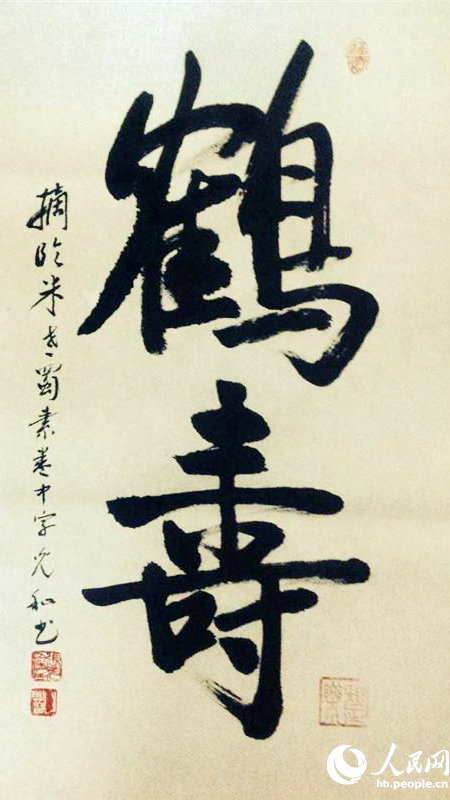 鶴壽
摘临米芾蜀素卷中字光和书
人民网
hb.people.cn